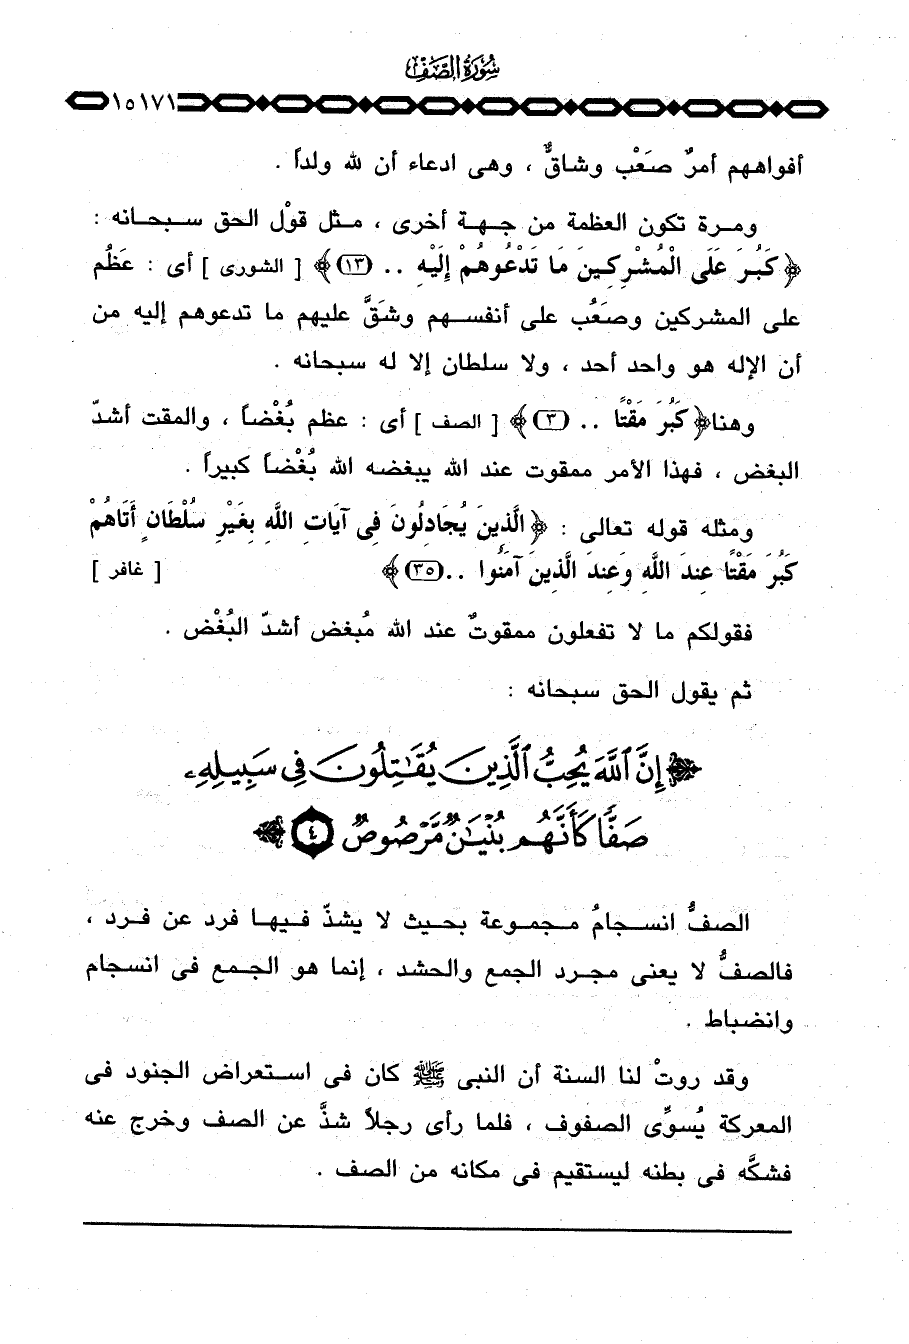 سُورَةُ الصَّفِّ
١٥١٧١
أفواههم أمرٌ صَعْب وشاقٌّ ، وهى ادعاء أن لله ولداً .
ومرة تكون العظمة من جهة أخرى ، مثل قوْل الحق سبحانه :
﴿كَبُرَ عَلَى الْمُشْرِكِينَ مَا تَدْعُوهُمْ إِلَيْهِ .. (١٣)﴾ [ الشورى ] أى : عَظُم
على المشركين وصَعُب على أنفسهم وشَقَّ عليهم ما تدعوهم إليه من
أن الإله هو واحد أحد ، ولا سلطان إلا له سبحانه .
وهنا﴿كَبُرَ مَقْتًا .. (٣)﴾ [ الصف ] أى : عظم بُغْضاً ، والمقت أشدّ
البغض ، فهذا الأمر ممقوت عند الله يبغضه الله بُغْضاً كبيراً .
ومثله قوله تعالى : ﴿الَّذِينَ يُجَادِلُونَ فِى آيَاتِ اللَّهِ بِغَيْرِ سُلْطَانٍ أَتَاهُمْ
كَبُرَ مَقْتًا عِندَ اللَّهِ وَعِندَ الَّذِينَ آمَنُوا ..(٣٥)﴾ [ غافر ]
فقولكم ما لا تفعلون ممقوتٌ عند الله مُبغض أشدّ البُغْض .
ثم يقول الحق سبحانه :
﴿إِنَّ ٱللَّهَ يُحِبُّ ٱلَّذِينَ يُقَٰتِلُونَ فِى سَبِيلِهِۦ
صَفًّا كَأَنَّهُم بُنْيَٰنٌ مَّرْصُوصٌ ٤﴾
الصفُّ انسجامُ مجموعة بحيث لا يشذّ فيها فرد عن فرد ،
فالصفُّ لا يعنى مجرد الجمع والحشد ، إنما هو الجمع فى انسجام
وانضباط .
وقد روتْ لنا السنة أن النبى ﷺ كان فى استعراض الجنود فى
المعركة يُسوِّى الصفوف ، فلما رأى رجلاً شذَّ عن الصف وخرج عنه
فشكَّه فى بطنه ليستقيم فى مكانه من الصف .